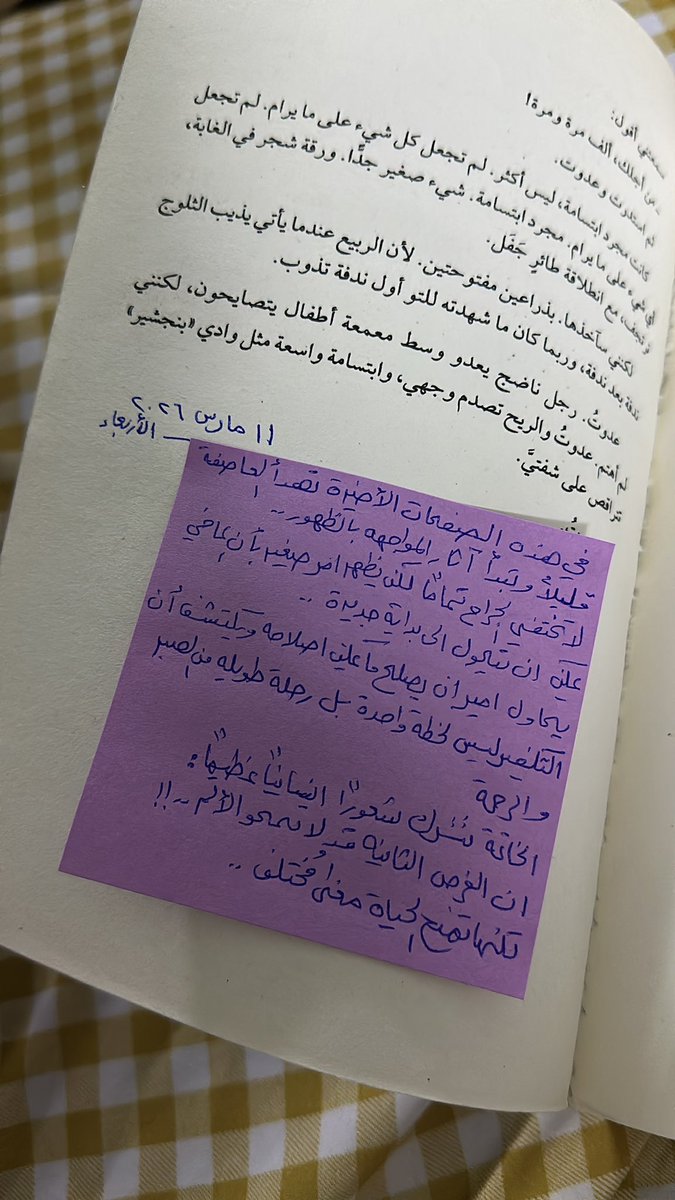 سمعتني أقول:
من أجلك، ألف مرة ومرة!
ثم استدرت وعدوت.
كانت مجرد ابتسامة، ليس أكثر. لم تجعل كل شيء على ما يرام. لم تجعل
أي شيء على ما يرام. مجرد ابتسامة. شيء صغير جدًّا. ورقة شجر في الغابة،
ترتجف، مع انطلاقة طائرٍ جَفَل.
لكنني سآخذها. بذراعين مفتوحتين. لأن الربيع عندما يأتي يذيب الثلوج
ندفة بعد ندفة، وربما كان ما شهدته للتو أول ندفة تذوب.
عدوتُ. رجل ناضج يعدو وسط معمعة أطفال يتصايحون، لكنني
لم أهتم. عدوتُ والريح تصدم وجهي، وابتسامة واسعة مثل وادي «بنجشير»
تراقص على شفتيَّ.
١١ مارس ٢٠٢٦
الأربعاء
في هذه الصفحات الأخيرة تهدأ العاصفة
قليلاً وتبدأ آثار المواجهه بالظهور..
لا تختفي الجراح تمامًا لكن يظهر امر صغير بأن الماضي
يمكن ان يتحول الى بداية جديدة ..
يحاول امير ان يصلح ما يمكن اصلاحه ويكتشف أن
التكفير ليس لحظة واحدة بل رحلة طويله من الصبر
والرحمة
الخاتمة تترك شعورًا انسانيًا عظيمًا:
ان الفرص الثانيه قد لا تمحو الألم ..!!
لكنها تمنح الحياة معنى مُختلف ..